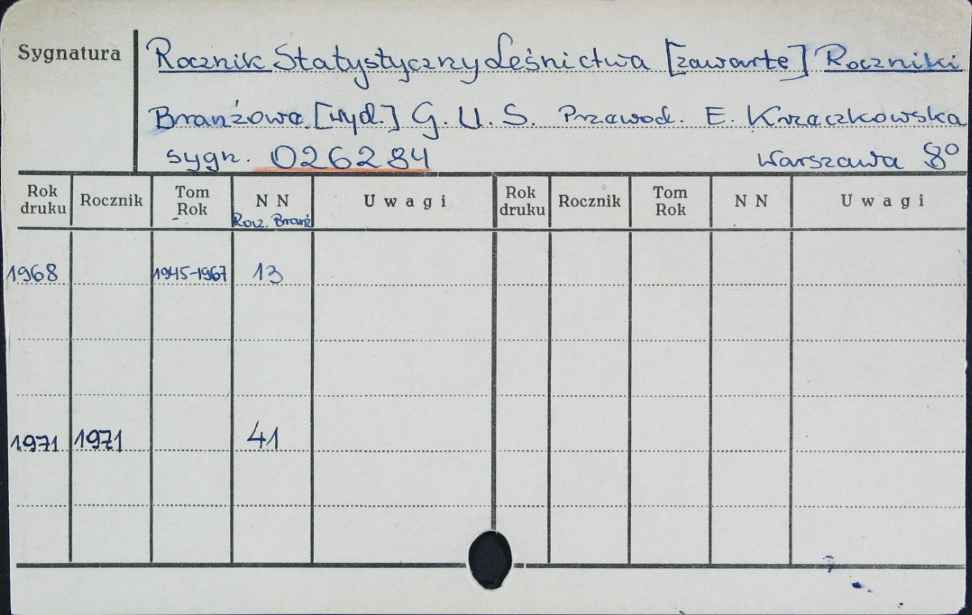 Sygnatura
Rocznik Statystyczny Leśnictwa [zawarte] Roczniki
Branżowe. [wyd.] G. U. S. Przewod. E. Krzaczkowska
sygn. 026284 Warszawa 8°
Rok druku Rocznik Tom Rok N N Uwagi Rok druku Rocznik Tom Rok N N Uwagi
Rocz. Branż
1968 1945-1967 13
1971 1971 41